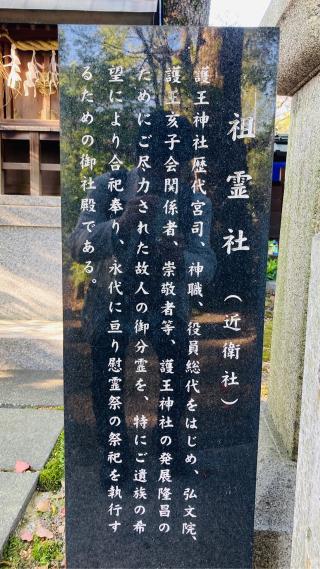 祖霊社（近衛社）
護王神社歴代宮司、神職、役員総代をはじめ、弘文院、
護王亥子会関係者、崇敬者等、護王神社の発展隆昌の
ためにご尽力された故人の御分霊を、特にご遺族の希
望により合祀奉り、永代に亘り慰霊祭の祭祀を執行す
るための御社殿である。